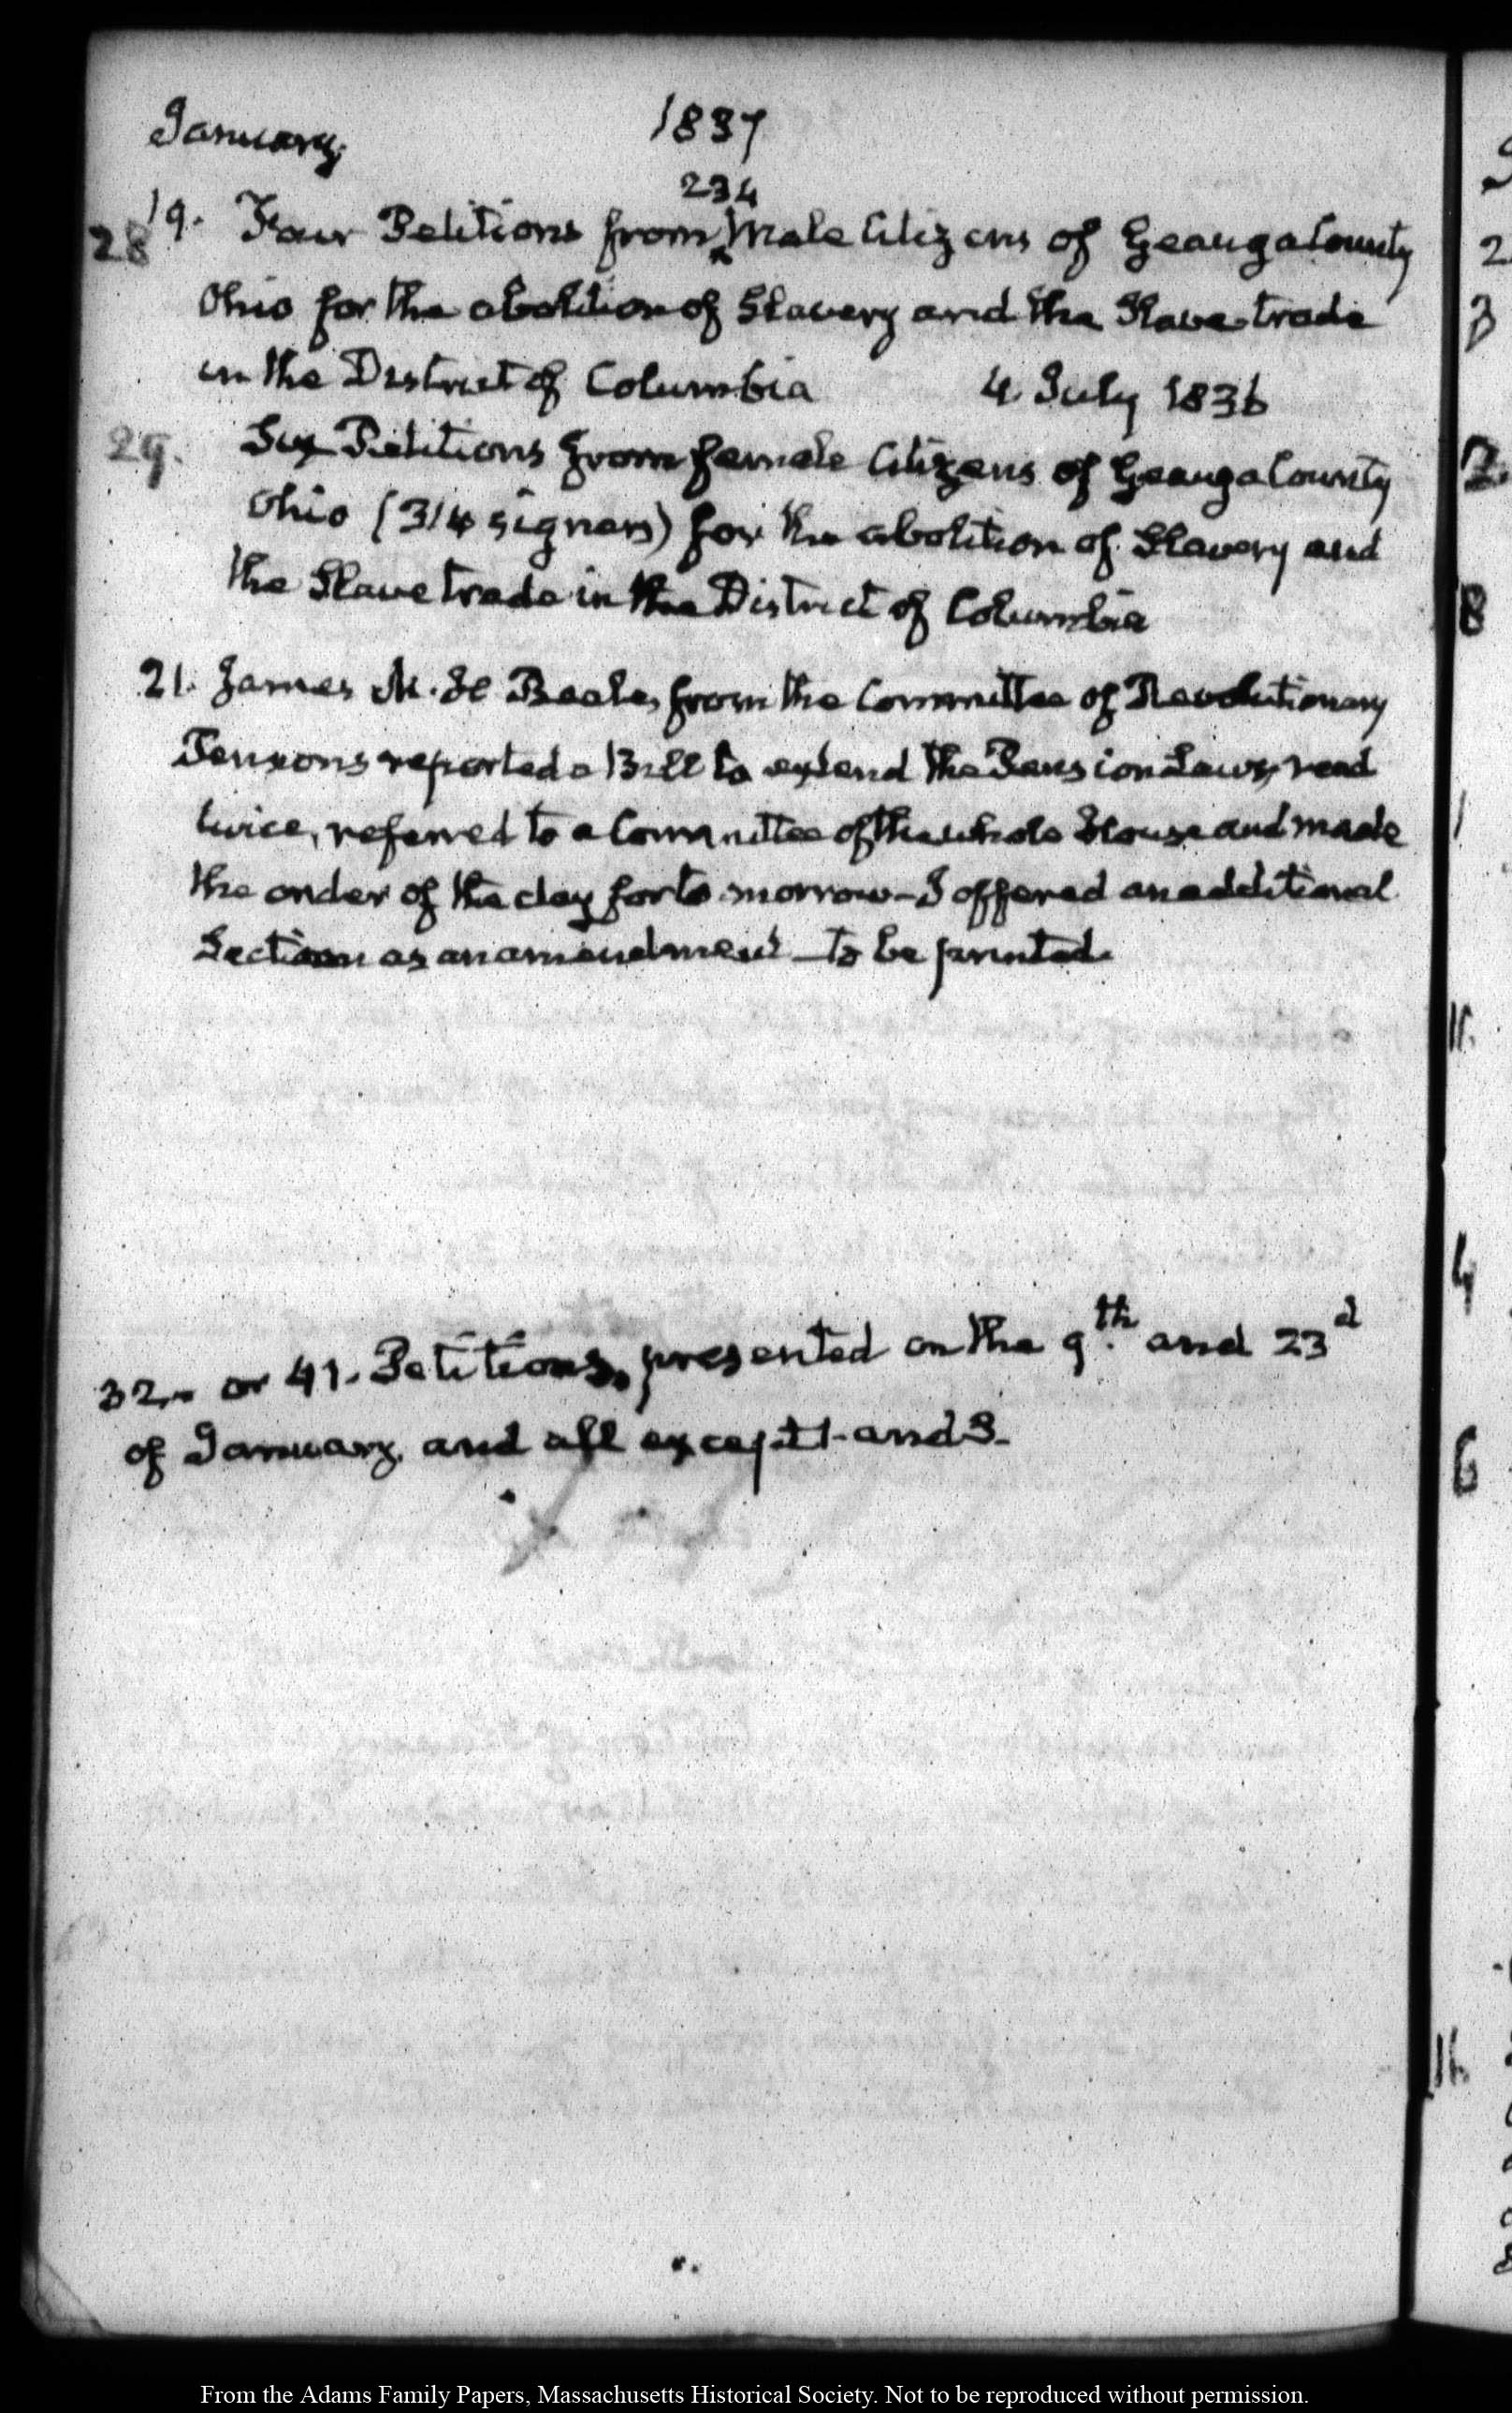 January.
1837
234
19. Four Petitions from ^ Male Citizens of Geauga County
28
Ohio for the abolition of Slavery and the Slave-trade
in the District of Columbia 4. July 1836
29. Six Petitions from female Citizens of Geauga County
Ohio (314 signers) for the abolition of Slavery and
the Slave trade in the District of Columbia
21. James M. H. Beale, from the Committee of Revolutionary
Pensions reported a Bill to extend the Pension Laws, read
twice, referred to a Committee of the whole House and made
the order of the day for to-morrow - I offered an additional
Section as an amendment - to be printed.
32. or 41. Petitions, presented on the 9th. and 23d
of January, and all except 1 and 3.
From the Adams Family Papers, Massachusetts Historical Society. Not to be reproduced without permission.